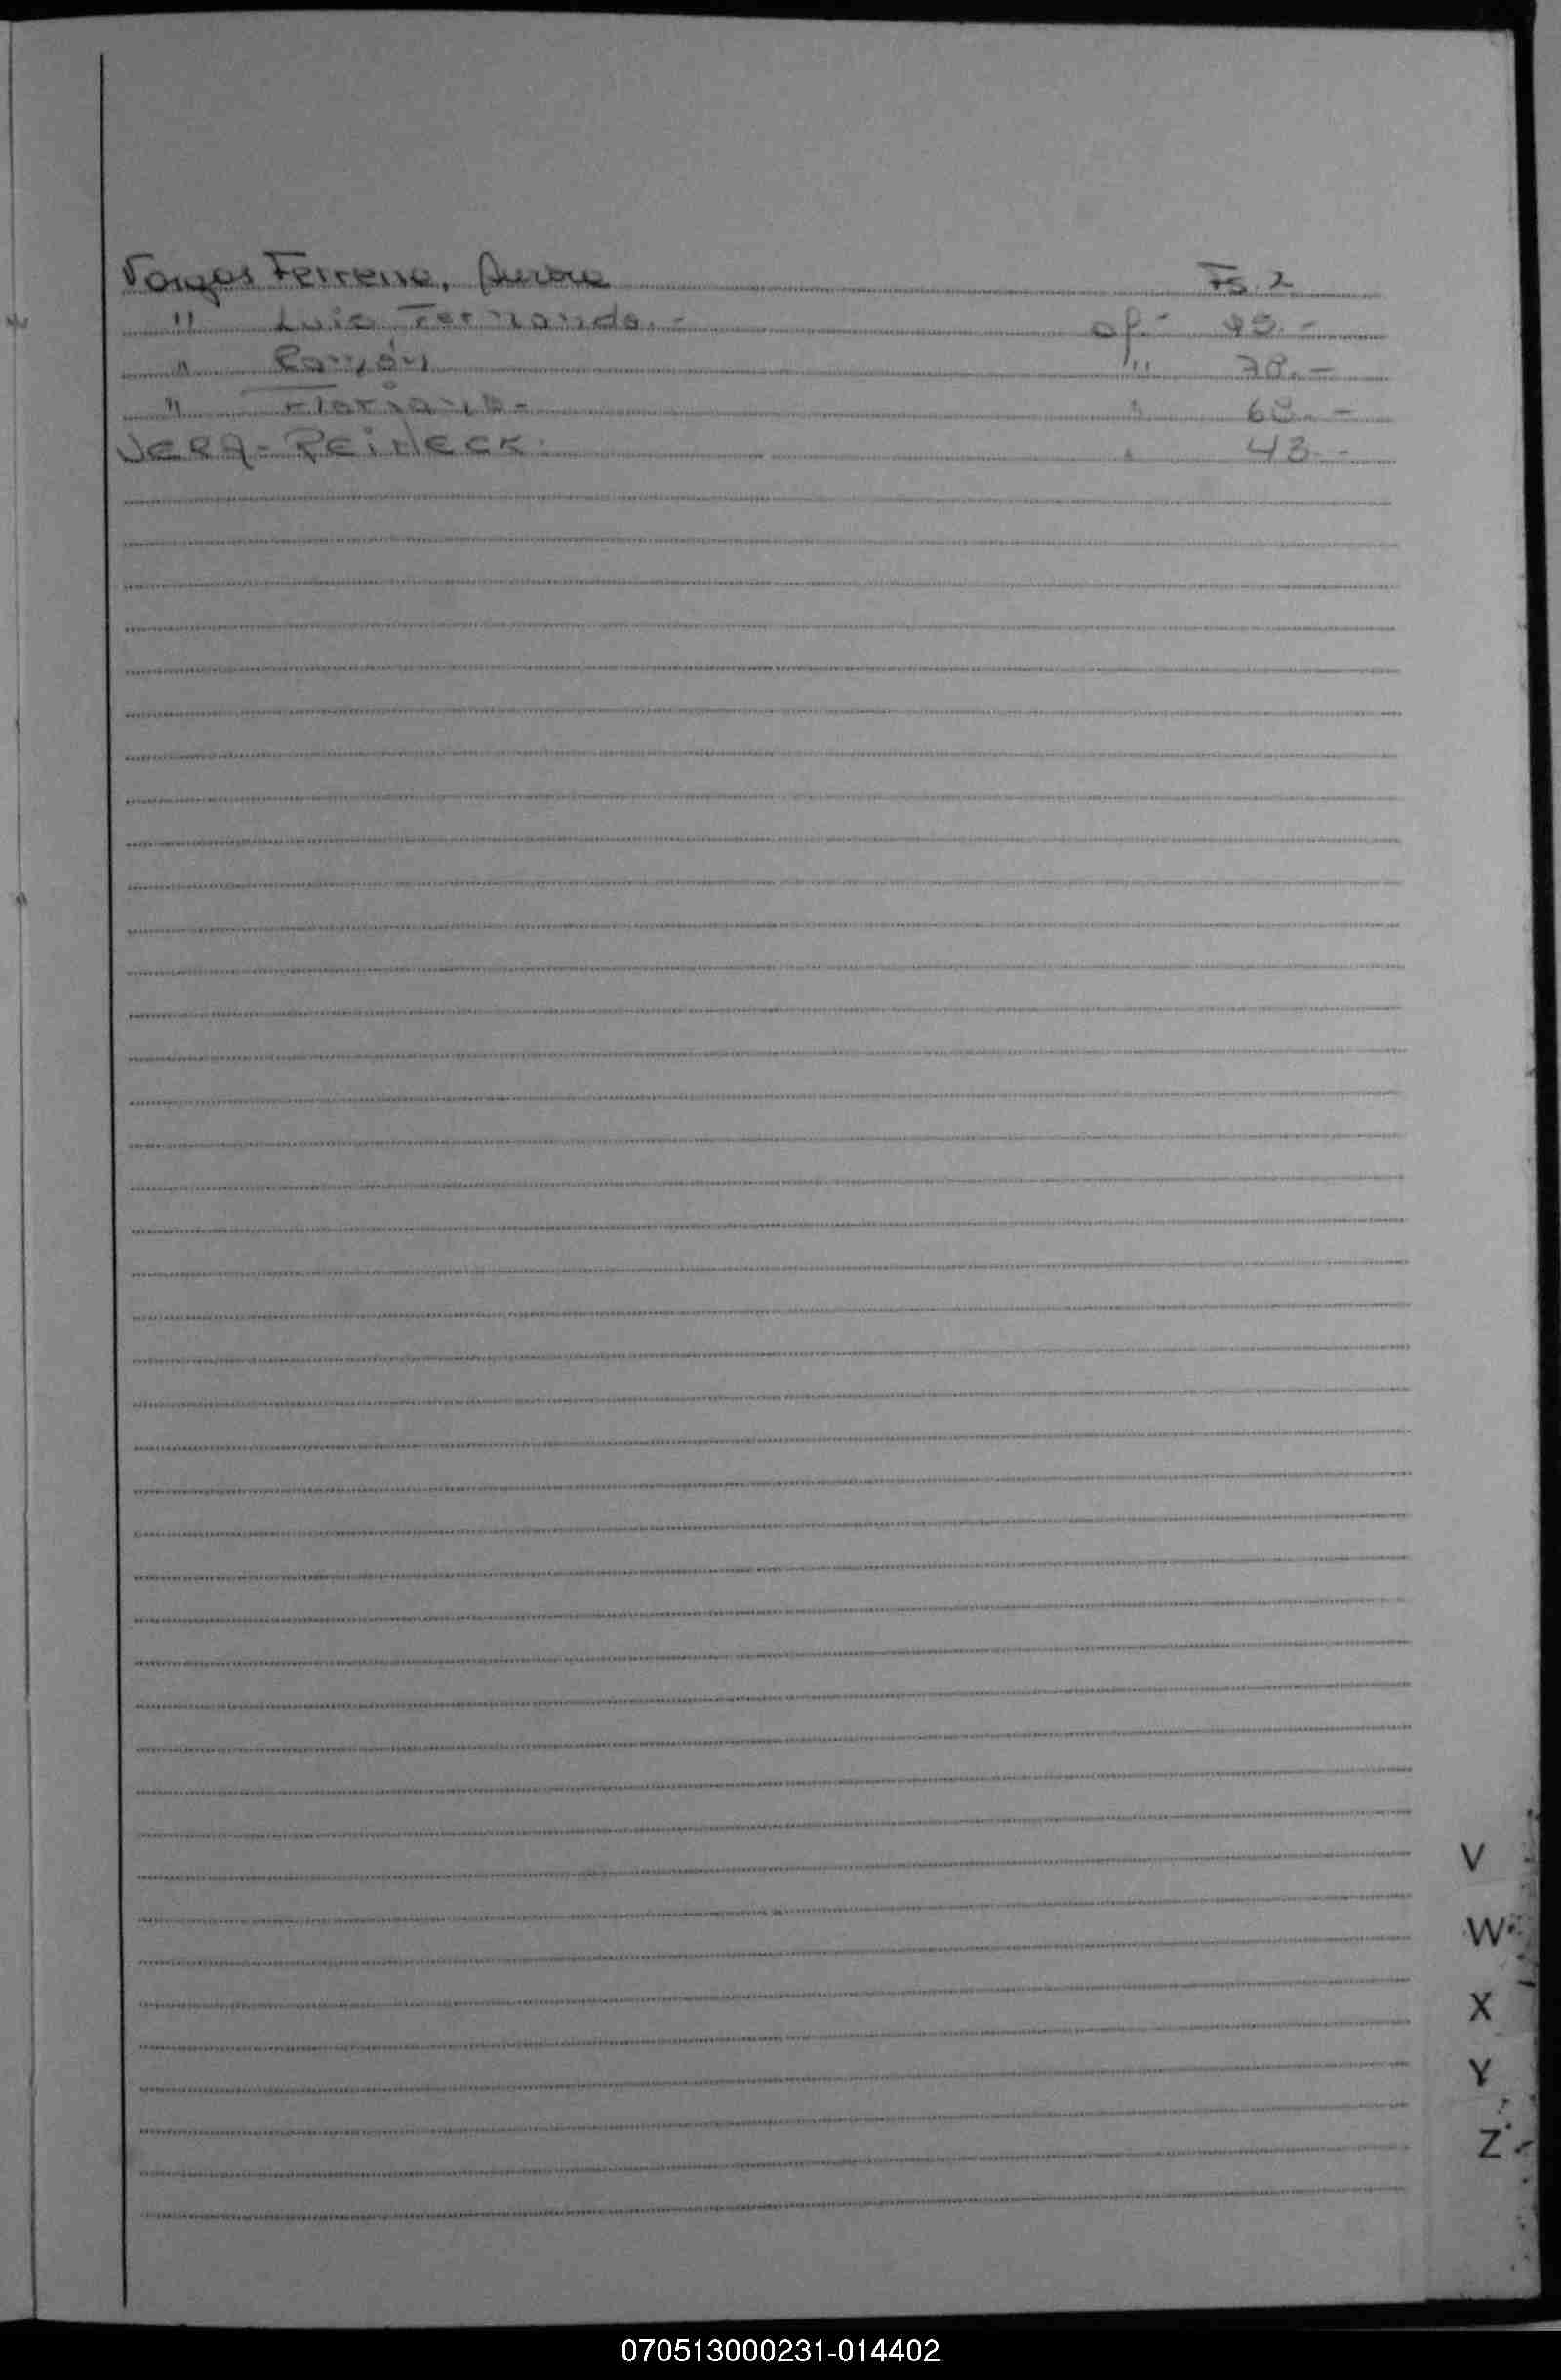 Vargas Ferreira, Aurora Fs. 2
" Luis Fernando.- af.- 95.-
" Ramón " 78.-
" Floriano.- " 68.-
VERA= REINECK. " 43.-
V
W
X
Y
Z
070513000231-014402